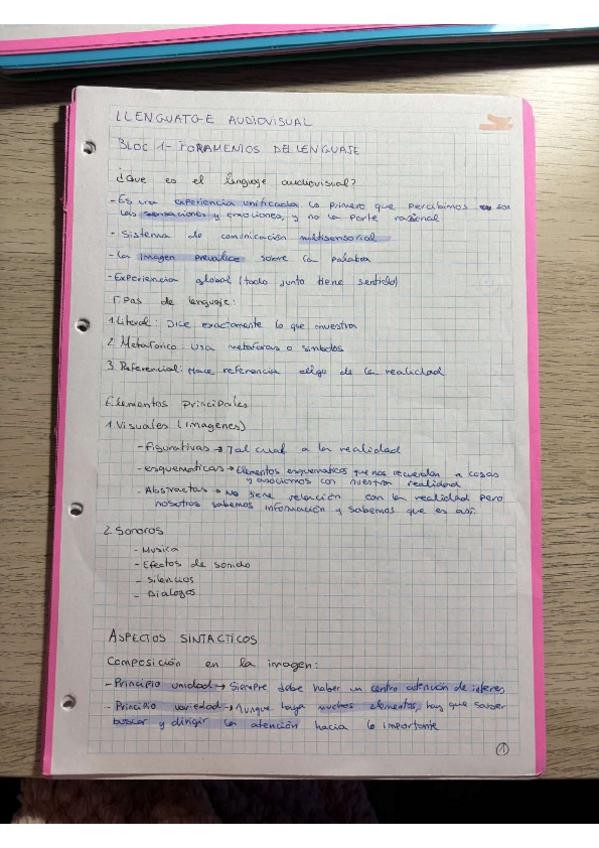 LLENGUATGE AUDIOVISUAL
BLOC 1- FORAMENTOS DEL LENGUAJE
¿Que es el lenguaje audiovisual?
- Es una experiencia unificada lo primero que percibimos son
las sensaciones y emociones, y no la parte racional
- Sistema de comunicación multisensorial
- La imagen prevalece sobre la palabra
- Experiencia global (todo junto tiene sentido)
Tipos de lenguaje:
1. Literal: Dice exactamente lo que muestra
2. Metaforico: Usa metaforas o simbolos
3. Referencial: Hace referencia algo de la realidad
Elementos principales
1. Visuales (imagenes)
- Figurativas → Tal cual a la realidad
- esquematicas → Elementos esquematicos que nos recuerdan a cosas
y asociamos con nuestra realidad
- Abstractas → No tiene relación con la realidad pero
nosotros sabemos información y sabemos que es así.
2. Sonoros
- Musica
- Efectos de sonido
- Silencios
- Dialogos
ASPECTOS SINTACTICOS
Composición en la imagen:
- Principio unidad → Siempre debe haber un centro atención de interes
- Principio variedad → Aunque haya muchos elementos, hay que saber
buscar y dirigir la atención hacia lo importante
1